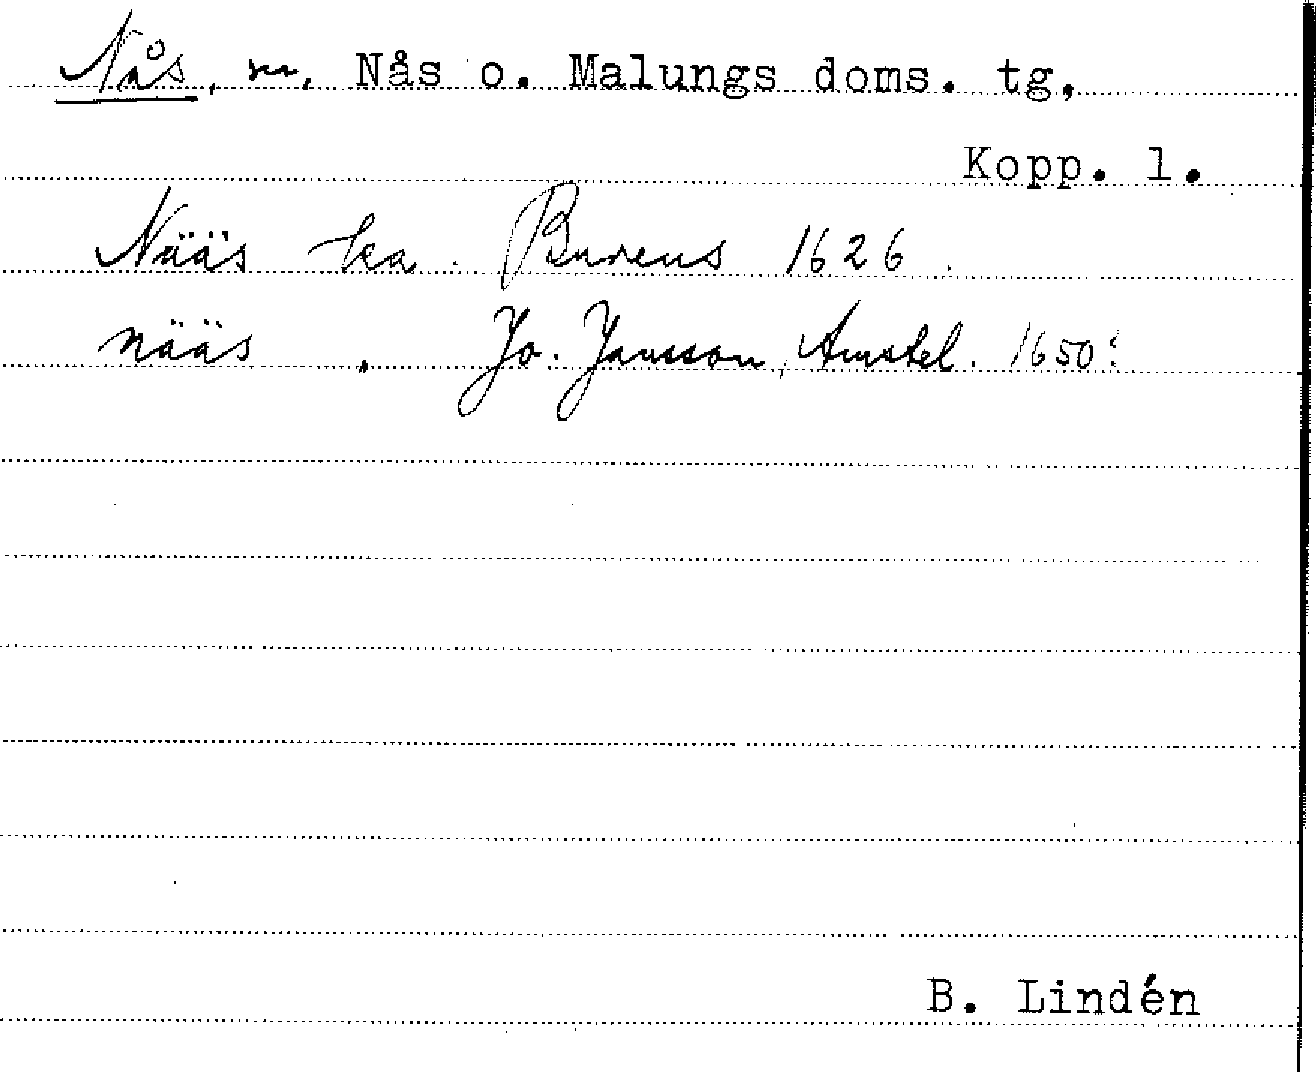 Nås, sn. Nås o. Malungs doms. tg,
Kopp. l.
Nääs ka. Bureus 1626.
nääs , Jo. Jansson, Amstel. 1650:
B. Lindén